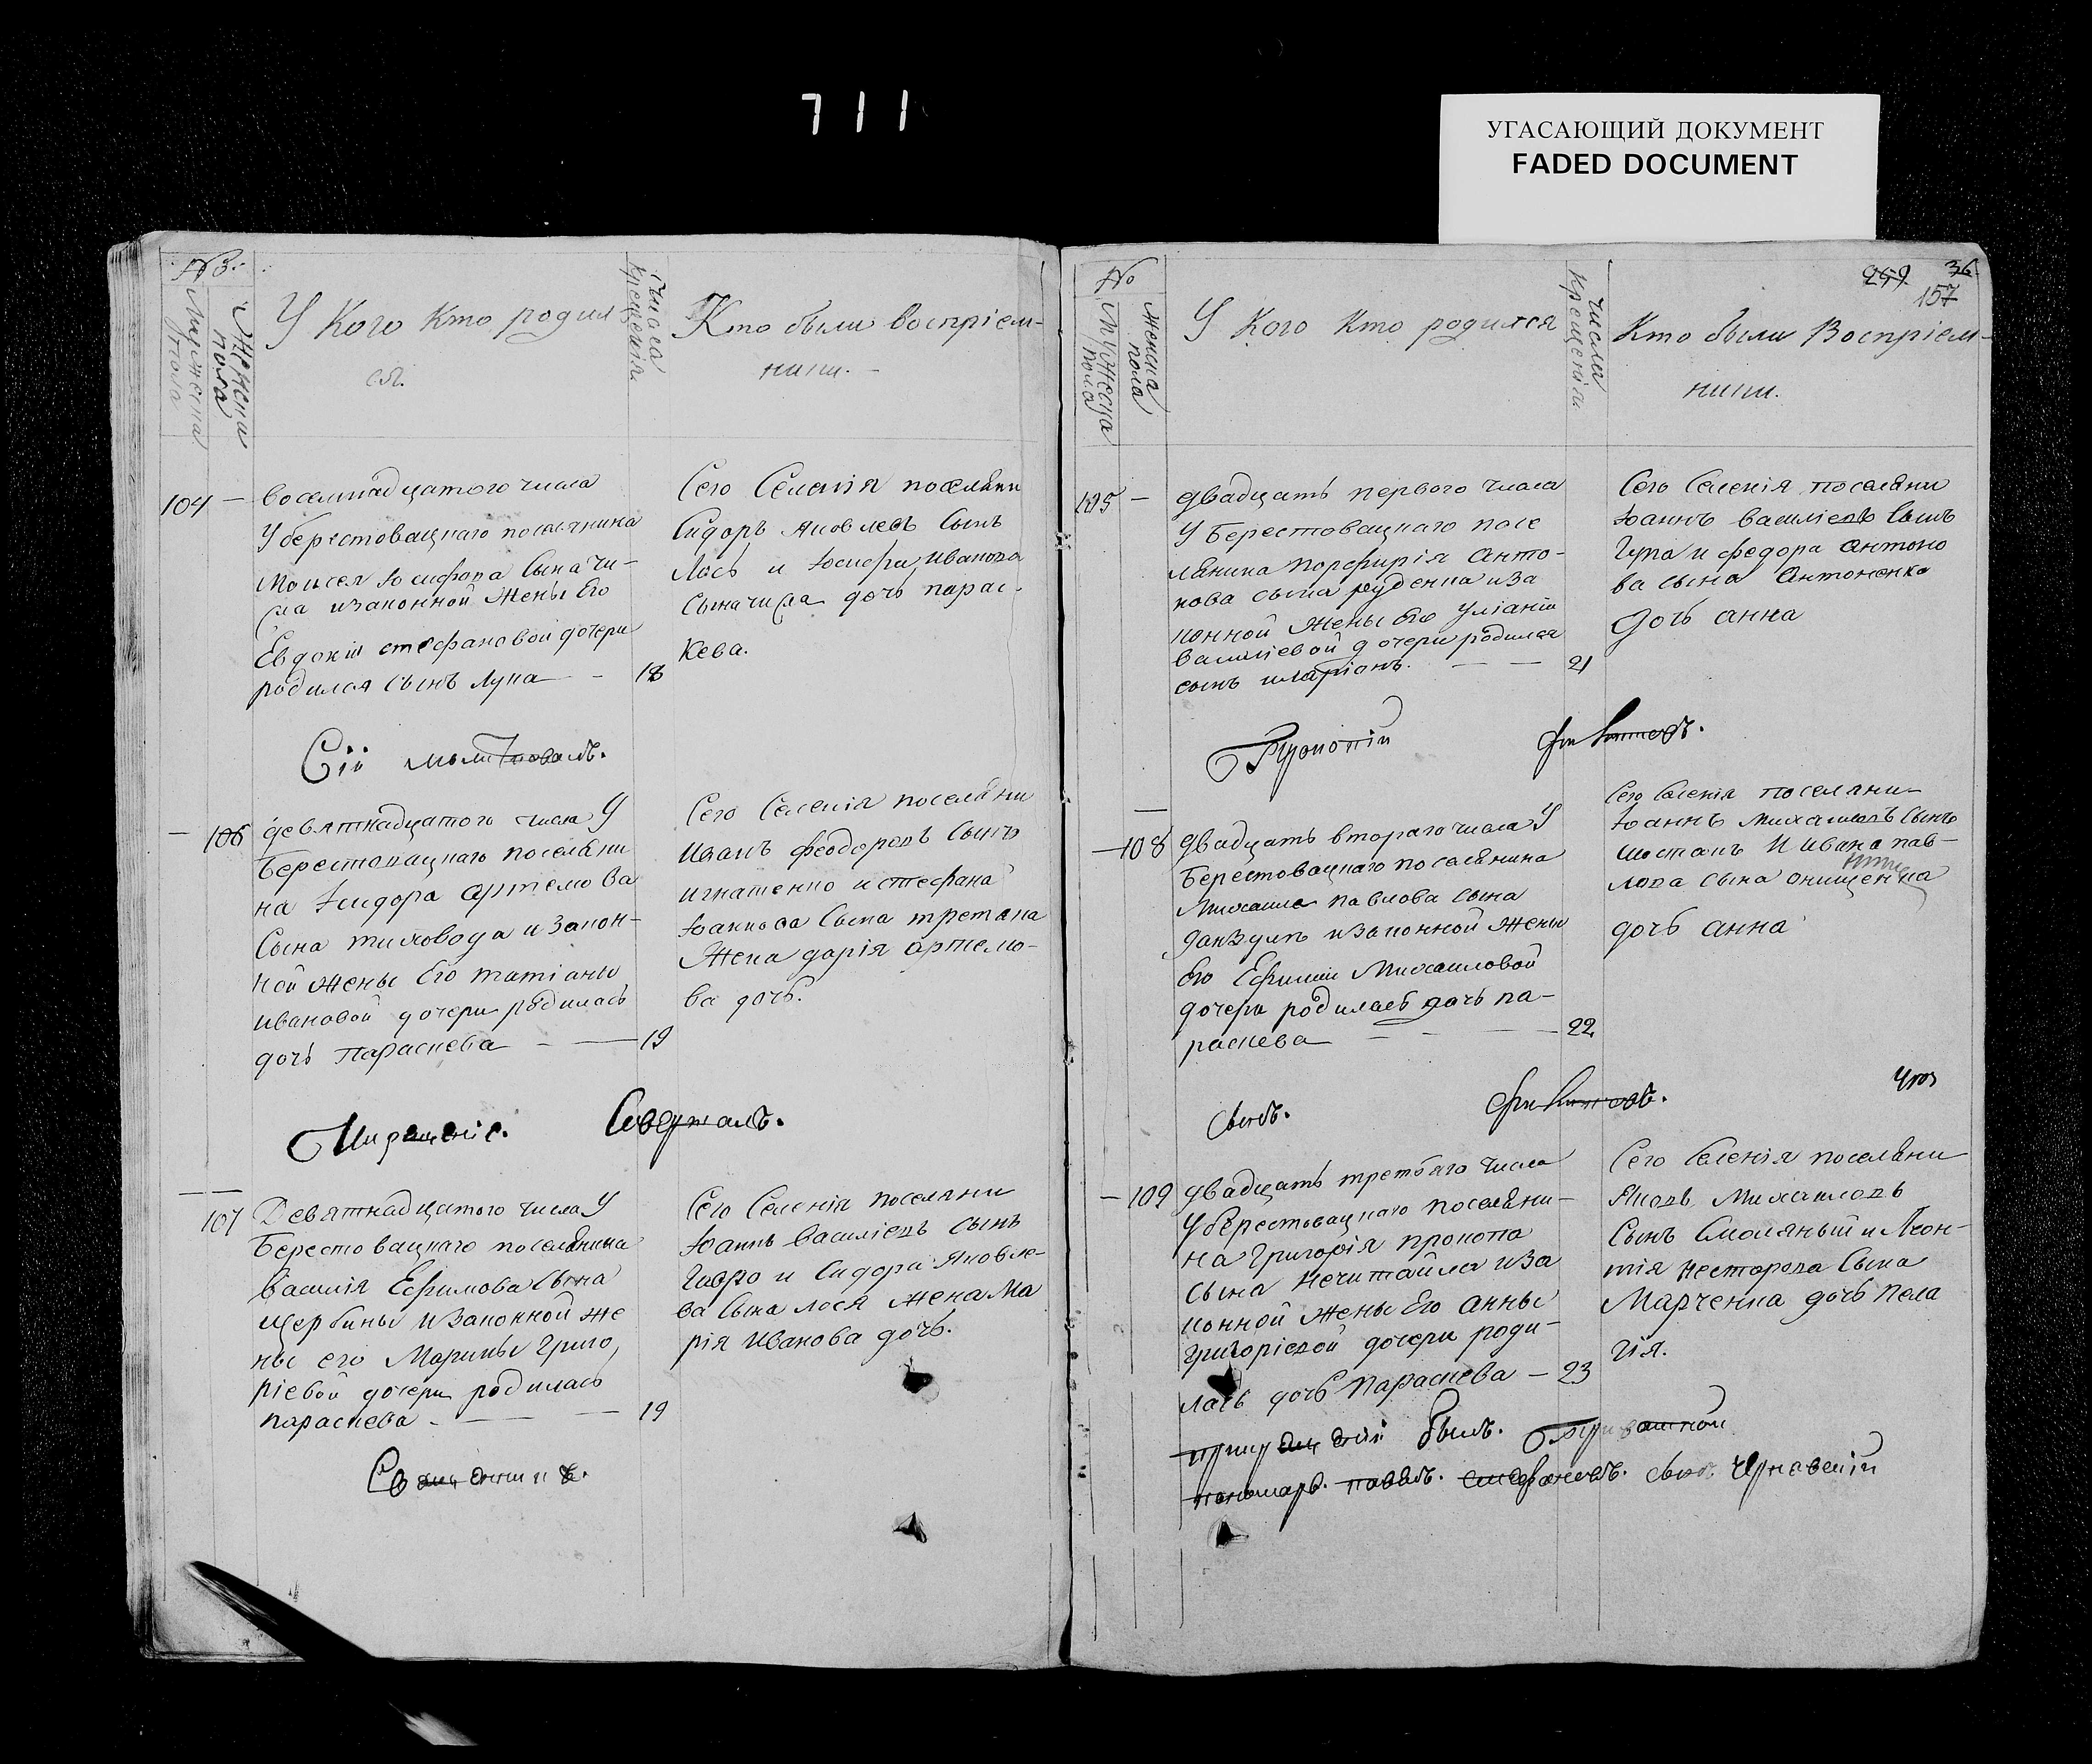 711
УГАСАЮЩИЙ ДОКУМЕНТ
FADED DOCUMENT
№
Мужеска пола
Женска пола
У Кого Кто родил
ся.
Числа Крещенія
Кто были воспріем-
ники.
104 — восемнадцатого числа
У берестовацкаго поселянина
Моисея Іосифова Сына
изаконной Жены Его
Евдокіи стефановой дочери
родился Сынъ Лука — 18
Сего Селенія поселяни
Сидоръ Яковлевъ Сынъ
Лось и Іосифа Иванова
Сына дочь парас-
кева.
Сіи
— 106 девятнадцатого числа У
Берестовацкаго поселяни
на Ісидора Артемова
Сына тиховода изакон-
ной жены Его татіаны
ивановой дочери родилась
дочь параскева — 19
Сего Селенія поселяни
Иванъ феодоровъ Сынъ
игнатенко и стефана
Іоаннова Сына третяка
Жена дарія артемо-
ва дочь.
107 Девятнадцатого числа У
Берестовацкаго поселянина
василія Ефимова Сына
щербины изаконной же
ны его Марины Григо
ріевой дочери родилась
параскева — 19
Сего Селенія поселяни
Іоаннъ Василіевъ Сынъ
и Сидора Яковле-
ва Сына лося жена Ма
рія иванова дочь.
Священникъ.
249 36
157
№
Мужеска пола
Женска пола
У Кого Кто родился
Числа Крещенія
Кто были Воспріем-
ники.
105 — двадцать первого числа
У Берестовацкаго посе
лянина порфирія Анто-
нова сына руденка иза
конной Жены Его Уліаніи
Василіевой дочери родился
сынъ иларіонъ. — — 21
Сего Селенія поселяни
Іоаннъ василіевъ Сынъ
и федора Антоно
ва сына Антоненко
дочь анна
— 108 двадцать втораго числа У
Берестовацкаго поселянина
Михаила павлова сына
изаконной Жены
Его Ефиміи Михаиловой
дочери родилась дочь па-
раскева — — 22
Сего Селенія поселяни-
Іоаннъ михаиловъ Сынъ
шостакъ И ивана пав-
лова сына онищенка
дочь анна
— 109 двадцать третьяго числа
У берестовацкаго поселяни-
на Григорія прокопа
сына нечитайла иза
конной жены Его анны
григоріевой дочери роди-
лась дочь Параскева — 23
Сего Селенія поселяни
Яковъ Михаиловъ
Сынъ Смоляный и Леон-
тія несторова Сына
Марченка дочь Пела
гія.
былъ.
пономарь. павелъ. стефановъ. сынъ